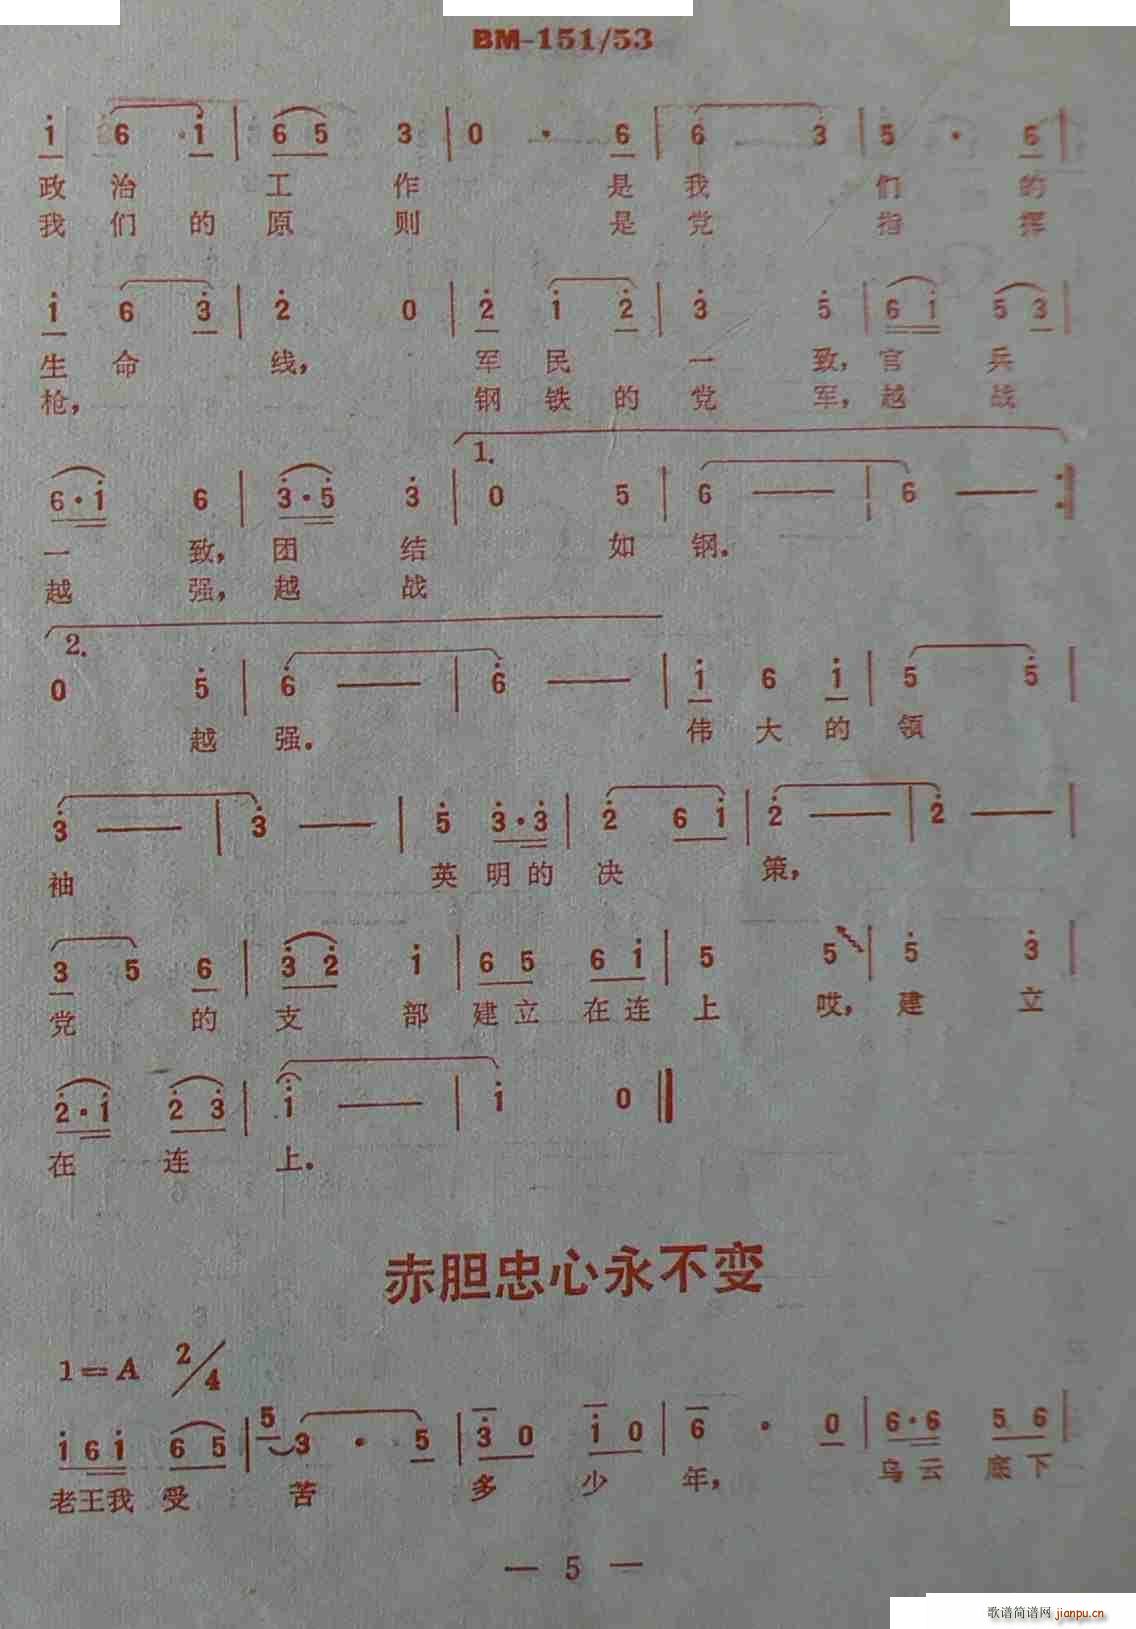 BM-151/53
i 6 · i | 6 5 3 | 0 · 6 | 6 3 | 5 · 6 |
政 治 工 作 是 我 们 的
我 们 的 原 则 是 党 指 挥
i 6 3 | 2 0 | 2 i 2 | 3 5 | 6 i 5 3 |
生 命 线, 军 民 一 致, 官 兵
枪, 钢 铁 的 党 军, 越 战
1.
6 · i 6 | 3 · 5 3 | 0 5 | 6 — | 6 — :|
一 致, 团 结 如 钢。
越 强, 越 战
2.
0 5 | 6 — | 6 — | i 6 i | 5 5 |
越 强。 伟 大 的 领
3 — | 3 — | 5 3 · 3 | 2 6 i | 2 — | 2 — |
袖 英 明 的 决 策,
3 5 6 | 3 2 i | 6 5 6 i | 5 5 | 5 3 |
党 的 支 部 建 立 在 连 上 哎, 建 立
2 · i 2 3 | i — | i 0 ‖
在 连 上。
赤胆忠心永不变
1=A 2/4
i 6 i 6 5 | 5 3 · 5 | 3 0 i 0 | 6 · 0 | 6 · 6 5 6 |
老 王 我 受 苦 多 少 年, 乌 云 底 下
— 5 —
歌谱简谱网 jianpu.cn